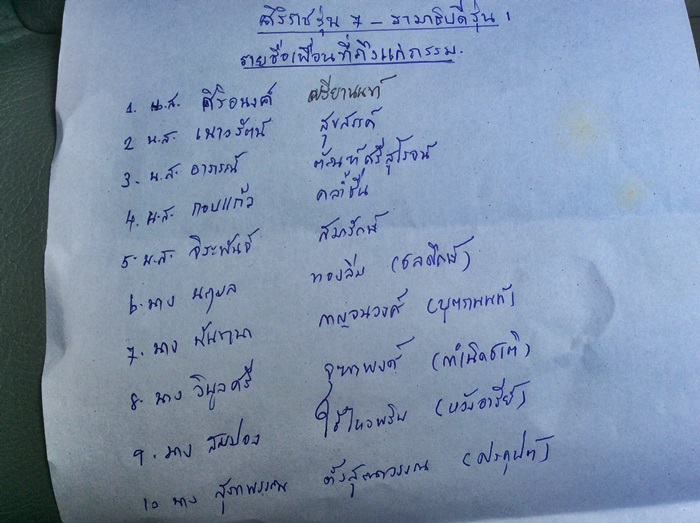 ศิริราชรุ่น 7 - รามาธิบดีรุ่น 1
รายชื่อเพื่อนที่ถึงแก่กรรม.
1. น.ส. ศิริอนงค์
2 น.ส. เนาวรัตน์ สุขสรรค์
3. น.ส. อาภรณ์ ตัณฑ์ศรีสุโรจน์
4. น.ส. กอบแก้ว คล้ำชื่น
5. น.ส. จิระพันธ์ สมารักษ์
6. นาง นฤมล ทองลิ่ม
7. นาง พันธนา กาญจนวงศ์ (บุตรานนท์)
8. นาง วิบูลศรี จุฑาพงศ์ (กำเนิดชาติ)
9. นาง สมปอง (หวังอารีย์)
10 นาง สุภาพรรณ